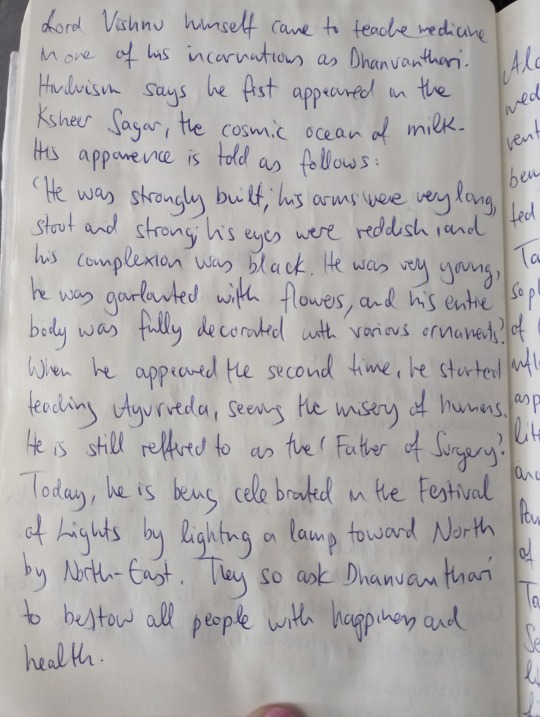 Lord Vishnu himself came to teache medicine
in one of his incarnations as Dhanvanthari.
Hinduism says he fist appeared in the
Ksheer Sagar, the cosmic ocean of milk.
His apparence is told as follows:
"He was strongly built; his arms were very long,
stout and strong; his eyes were reddish, and
his complexion was black. He was very young,
he was garlanted with flowers, and his entire
body was fully decorated with various ornaments."
When he appeared the second time, he started
teaching Ayurveda, seeing the misery of humans.
He is still reffered to as the "Father of Surgery".
Today, he is being celebrated in the Festival
of Lights by lighting a lamp toward North
by North-East. They so ask Dhanvanthari
to bestow all people with happiness and
health.